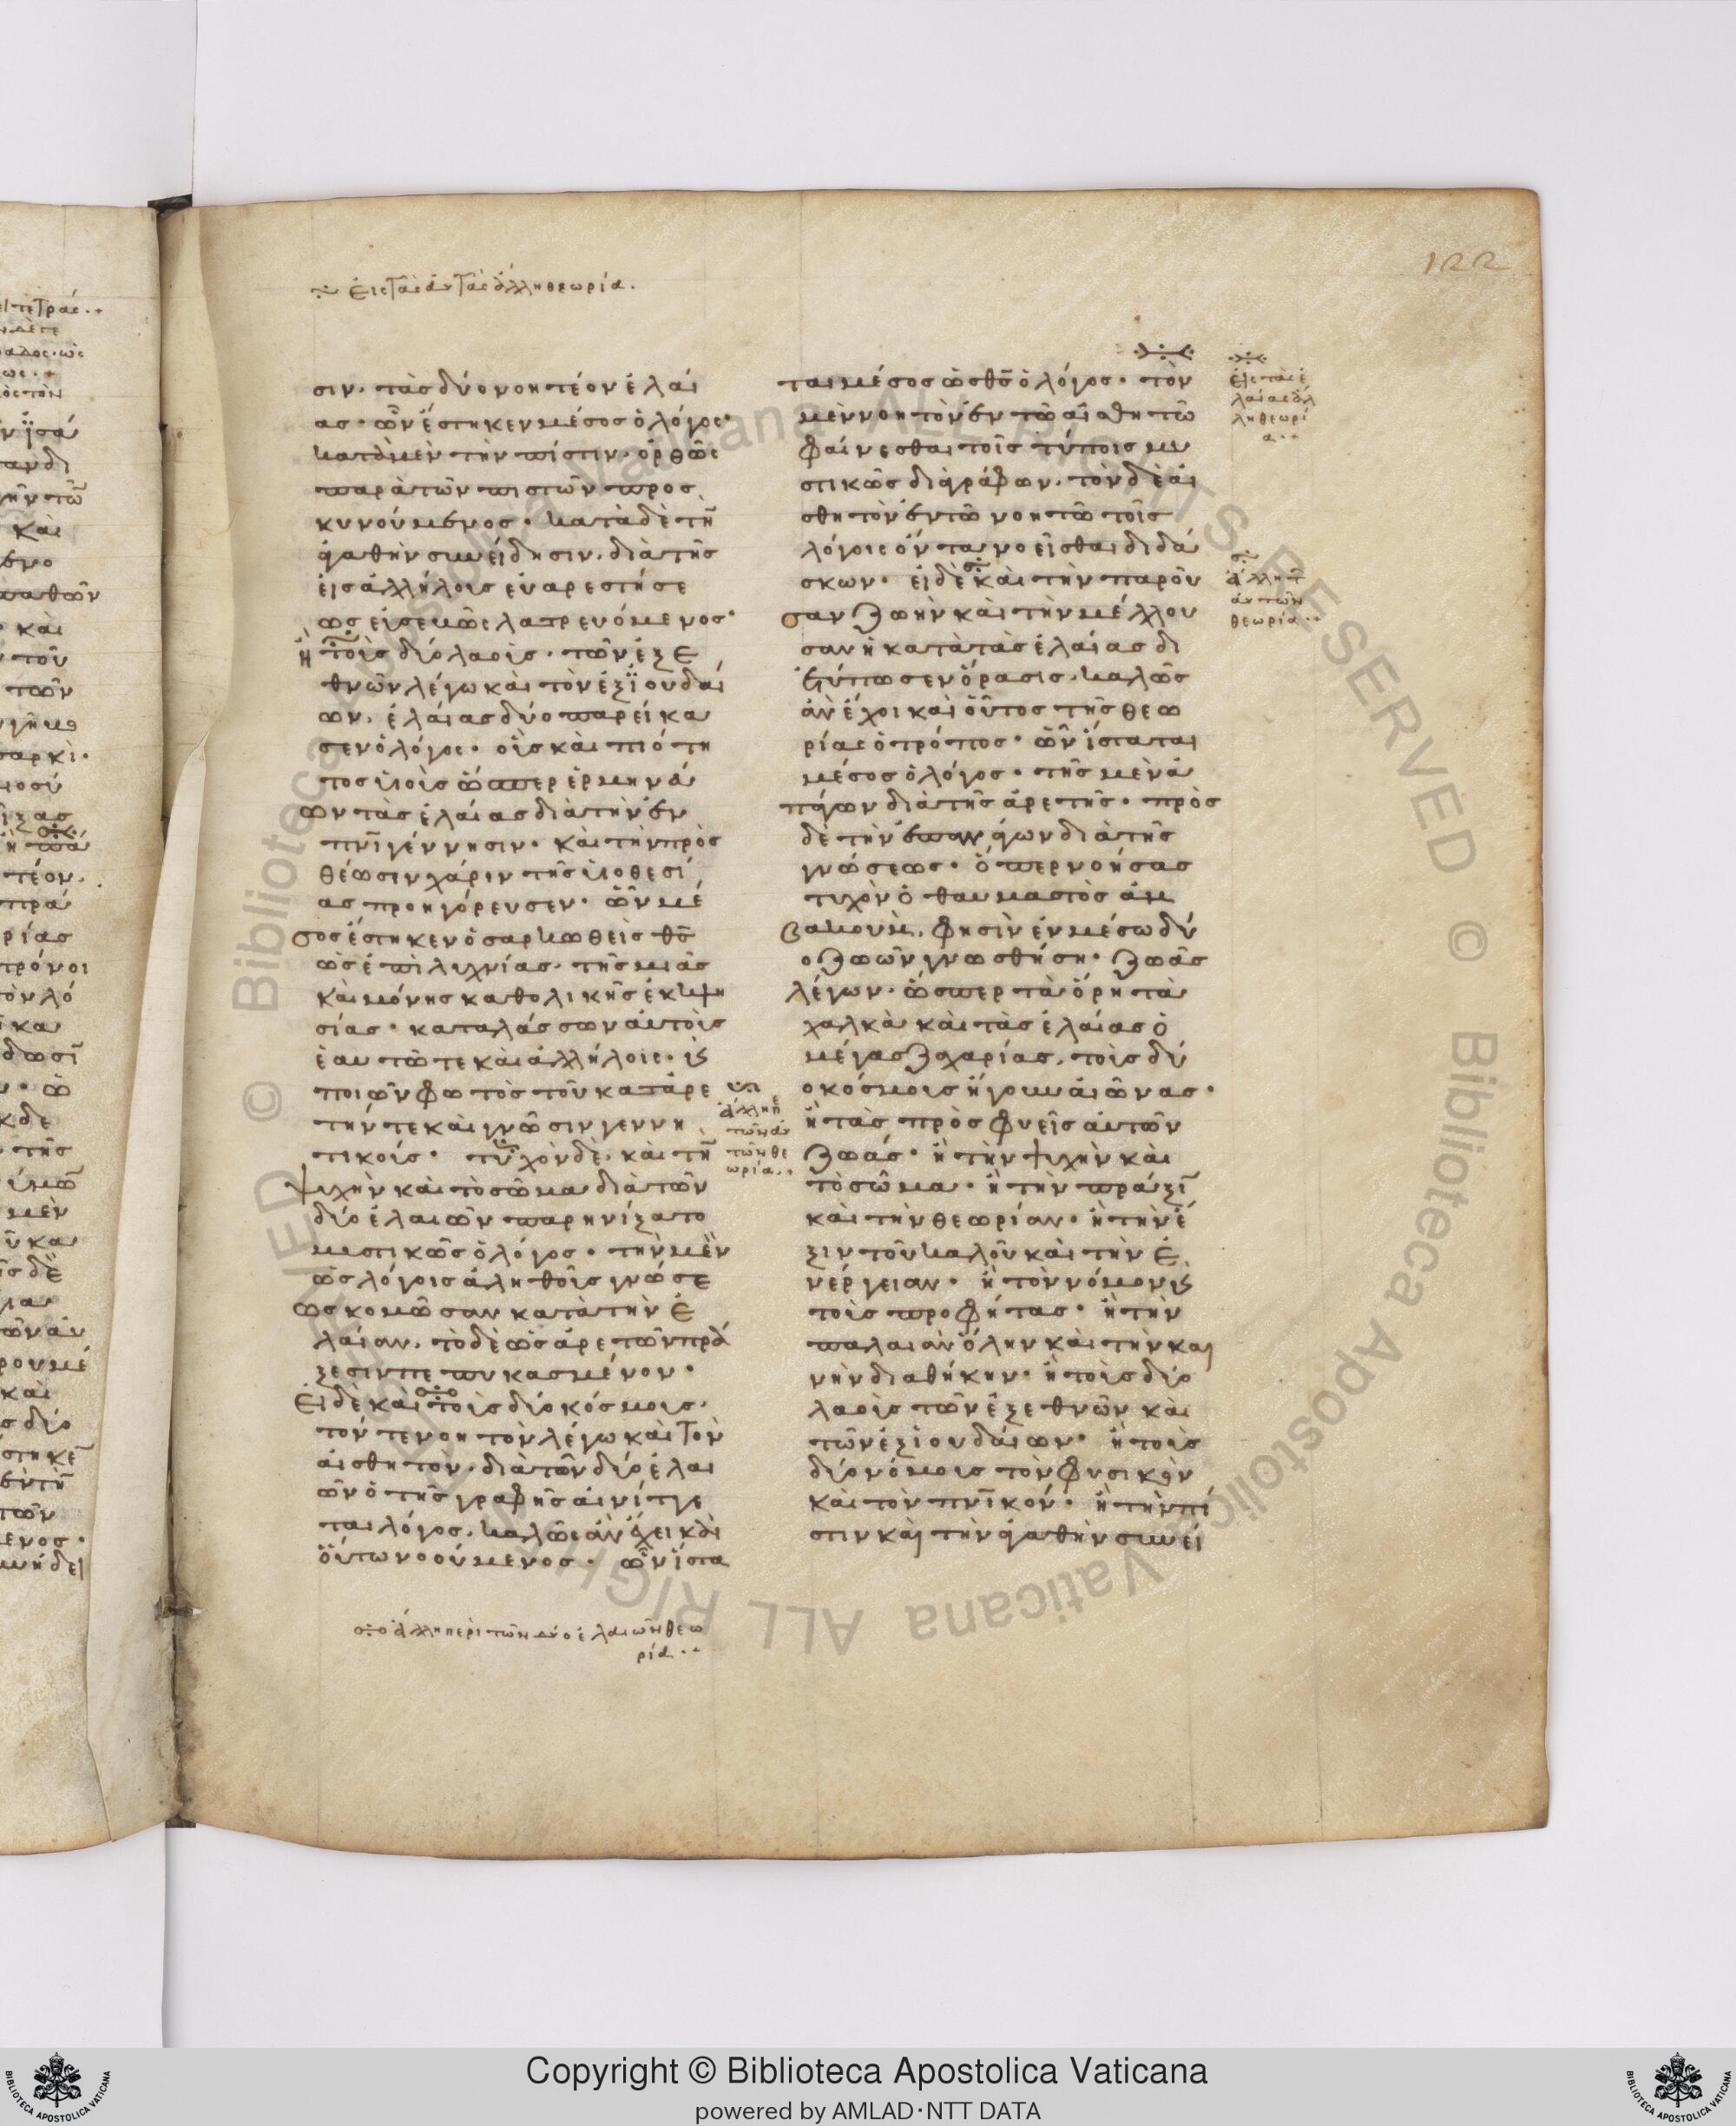 122
Εἰς τὰς αὐτὰς ἄλλη θεωρία.
σιν· τὰς δύο νοητέον ἐλαί
ας· ὧν ἕστηκεν μέσος ὁ λόγος·
κατὰ μὲν τὴν πίστιν, ὀρθῶς
παρὰ τῶν πιστῶν προσ
κυνούμενος· κατὰ δὲ τὴν
ἀγαθὴν συνείδησιν, διὰ τῆς
εἰς ἀλλήλους εὐαρεστήσε
ως εὐσεμῶς λατρευόμενος·
ἢ τοὺς δύο λαοὺς· τῶν ἐξ ἐ
θνῶν λέγω καὶ τὸν ἐξ ϊουδαί
ων, ἐλαίας δύο παρείκα
σεν ὁ λόγος· οὓς καὶ πιότη
τος υἱοὺς ὥσπερ ἑρμηνεύ
ων τὰς ἐλαίας διὰ τὴν ἐν
πνι γέννησιν· καὶ τὴν πρὸς
θέωσιν χάριν τῆς υἱοθεσί
ας προηγόρευσεν· ὧν μέ
σος ἕστηκεν ὁ σαρκωθεὶς θς
ὡς ἐπὶ λυχνίας, τῆς μιᾶς
καὶ μόνης καθολικῆς ἐκκλη
σίας· καταλάσσων αὐτοὺς
ἑαυτῶ τε καὶ ἀλλήλοις· κ̀
ποιῶν φωτὸς τοῦ κατ' ἀρε
τήν τε καὶ γνῶσιν γεννη
τικούς· τυχὸν δὲ, καὶ τὴν
ψυχὴν καὶ τὸ σῶμα διὰ τῶν
δύο ἐλαιῶν παρηνίξατο
μυστικῶς ὁ λόγος· τὴν μὲν
ὡς λόγοις ἀληθοῖς γνώσε
ως κομῶσαν κατὰ τὴν ἐ
λαίαν, τὸ δὲ ὡς ἀρετῶν πρά
ξεσιν πεπυκασμένον·
Εἰ δὲ καὶ τοὺς δύο κόσμους,
τόν τε νοητὸν λέγω καὶ τὸν
αἰσθητὸν, διὰ τῶν δύο ἐλαι
ῶν ὁ τῆς γραφῆς αἰνίττε
ται λόγος, καλῶς ἂν ἔχει καὶ
οὕτω νοούμενος· ὧν ἵστα
Ἄλλη περὶ τῶν δύο ἐλαιῶν θεω
ρία
ἄλλη ἐκ
τῶν αὐ
τῶν θε
ωρία
ται μέσος ὡς θς ὁ λόγος· τὸν
μὲν νοητὸν ἐν τῶ αἰσθητῶ
φαίνεσθαι τοῖς τύποις μυ
στικῶς διαγράφων, τὸν δὲ αἰ
σθητὸν ἐν τῶ νοητῶ τοῖς
λόγοις ὄντα νοεῖσθαι διδά
σκων· εἰ δὲ καὶ τὴν παροῦ
σαν ζωὴν καὶ τὴν μέλλου
σαν ἡ κατὰ τὰς ἐλαίας δι
ετύπωσεν ὅρασις, καλῶς
ἂν ἔχοι καὶ οὗτος τῆς θεω
ρίας ὁ τρόπος· ὧν ἵσταται
μέσος ὁ λόγος· τῆς μὲν ἀ
πάγων διὰ τῆς ἀρετῆς· πρὸς
δὲ τὴν ἐπανάγων διὰ τῆς
γνώσεως· ὅπερ νοήσας
τυχὸν ὁ θαυμαστὸς ἀμ
βακοὺμ, φησὶν ἐν μέσω δύ
ο ζωῶν γνωσθήση· ζωὰς
λέγων, ὥσπερ τὰ ὄρη τὰ
χαλκὰ καὶ τὰς ἐλαίας ὁ
μέγας ζαχαρίας, τοὺς δύ
ο κόσμους ἤγουν αἰῶνας·
ἢ τὰς προσφυεῖς αὐτῶν
ζωάς· ἢ τὴν ψυχὴν καὶ
τὸ σῶμα· ἢ τὴν πράξιν
καὶ τὴν θεωρίαν· ἢ τὴν ἕ
ξιν τοῦ καλοῦ καὶ τὴν ἐ
νέργειαν· ἢ τὸν νόμον κ̀
τοὺς προφήτας· ἢ τὴν
παλαιὰν ὅλην καὶ τὴν και
νὴν διαθήκην· ἢ τοὺς δύο
λαοὺς τῶν ἐξ ἐθνῶν καὶ
τῶν ἐξ ἰουδαίων· ἢ τοὺς
δύο νόμους τὸν φυσικὸν
καὶ τὸν πνικόν· ἢ τὴν πί
στιν καὶ τὴν ἀγαθὴν συνεί
Εἰς τὰς ἐ
λαίας ἄλ
λη θεωρί
α
ἄλλη εἰς
αὐτῶν
θεωρία
Copyright © Biblioteca Apostolica Vaticana
powered by AMLAD·NTT DATA